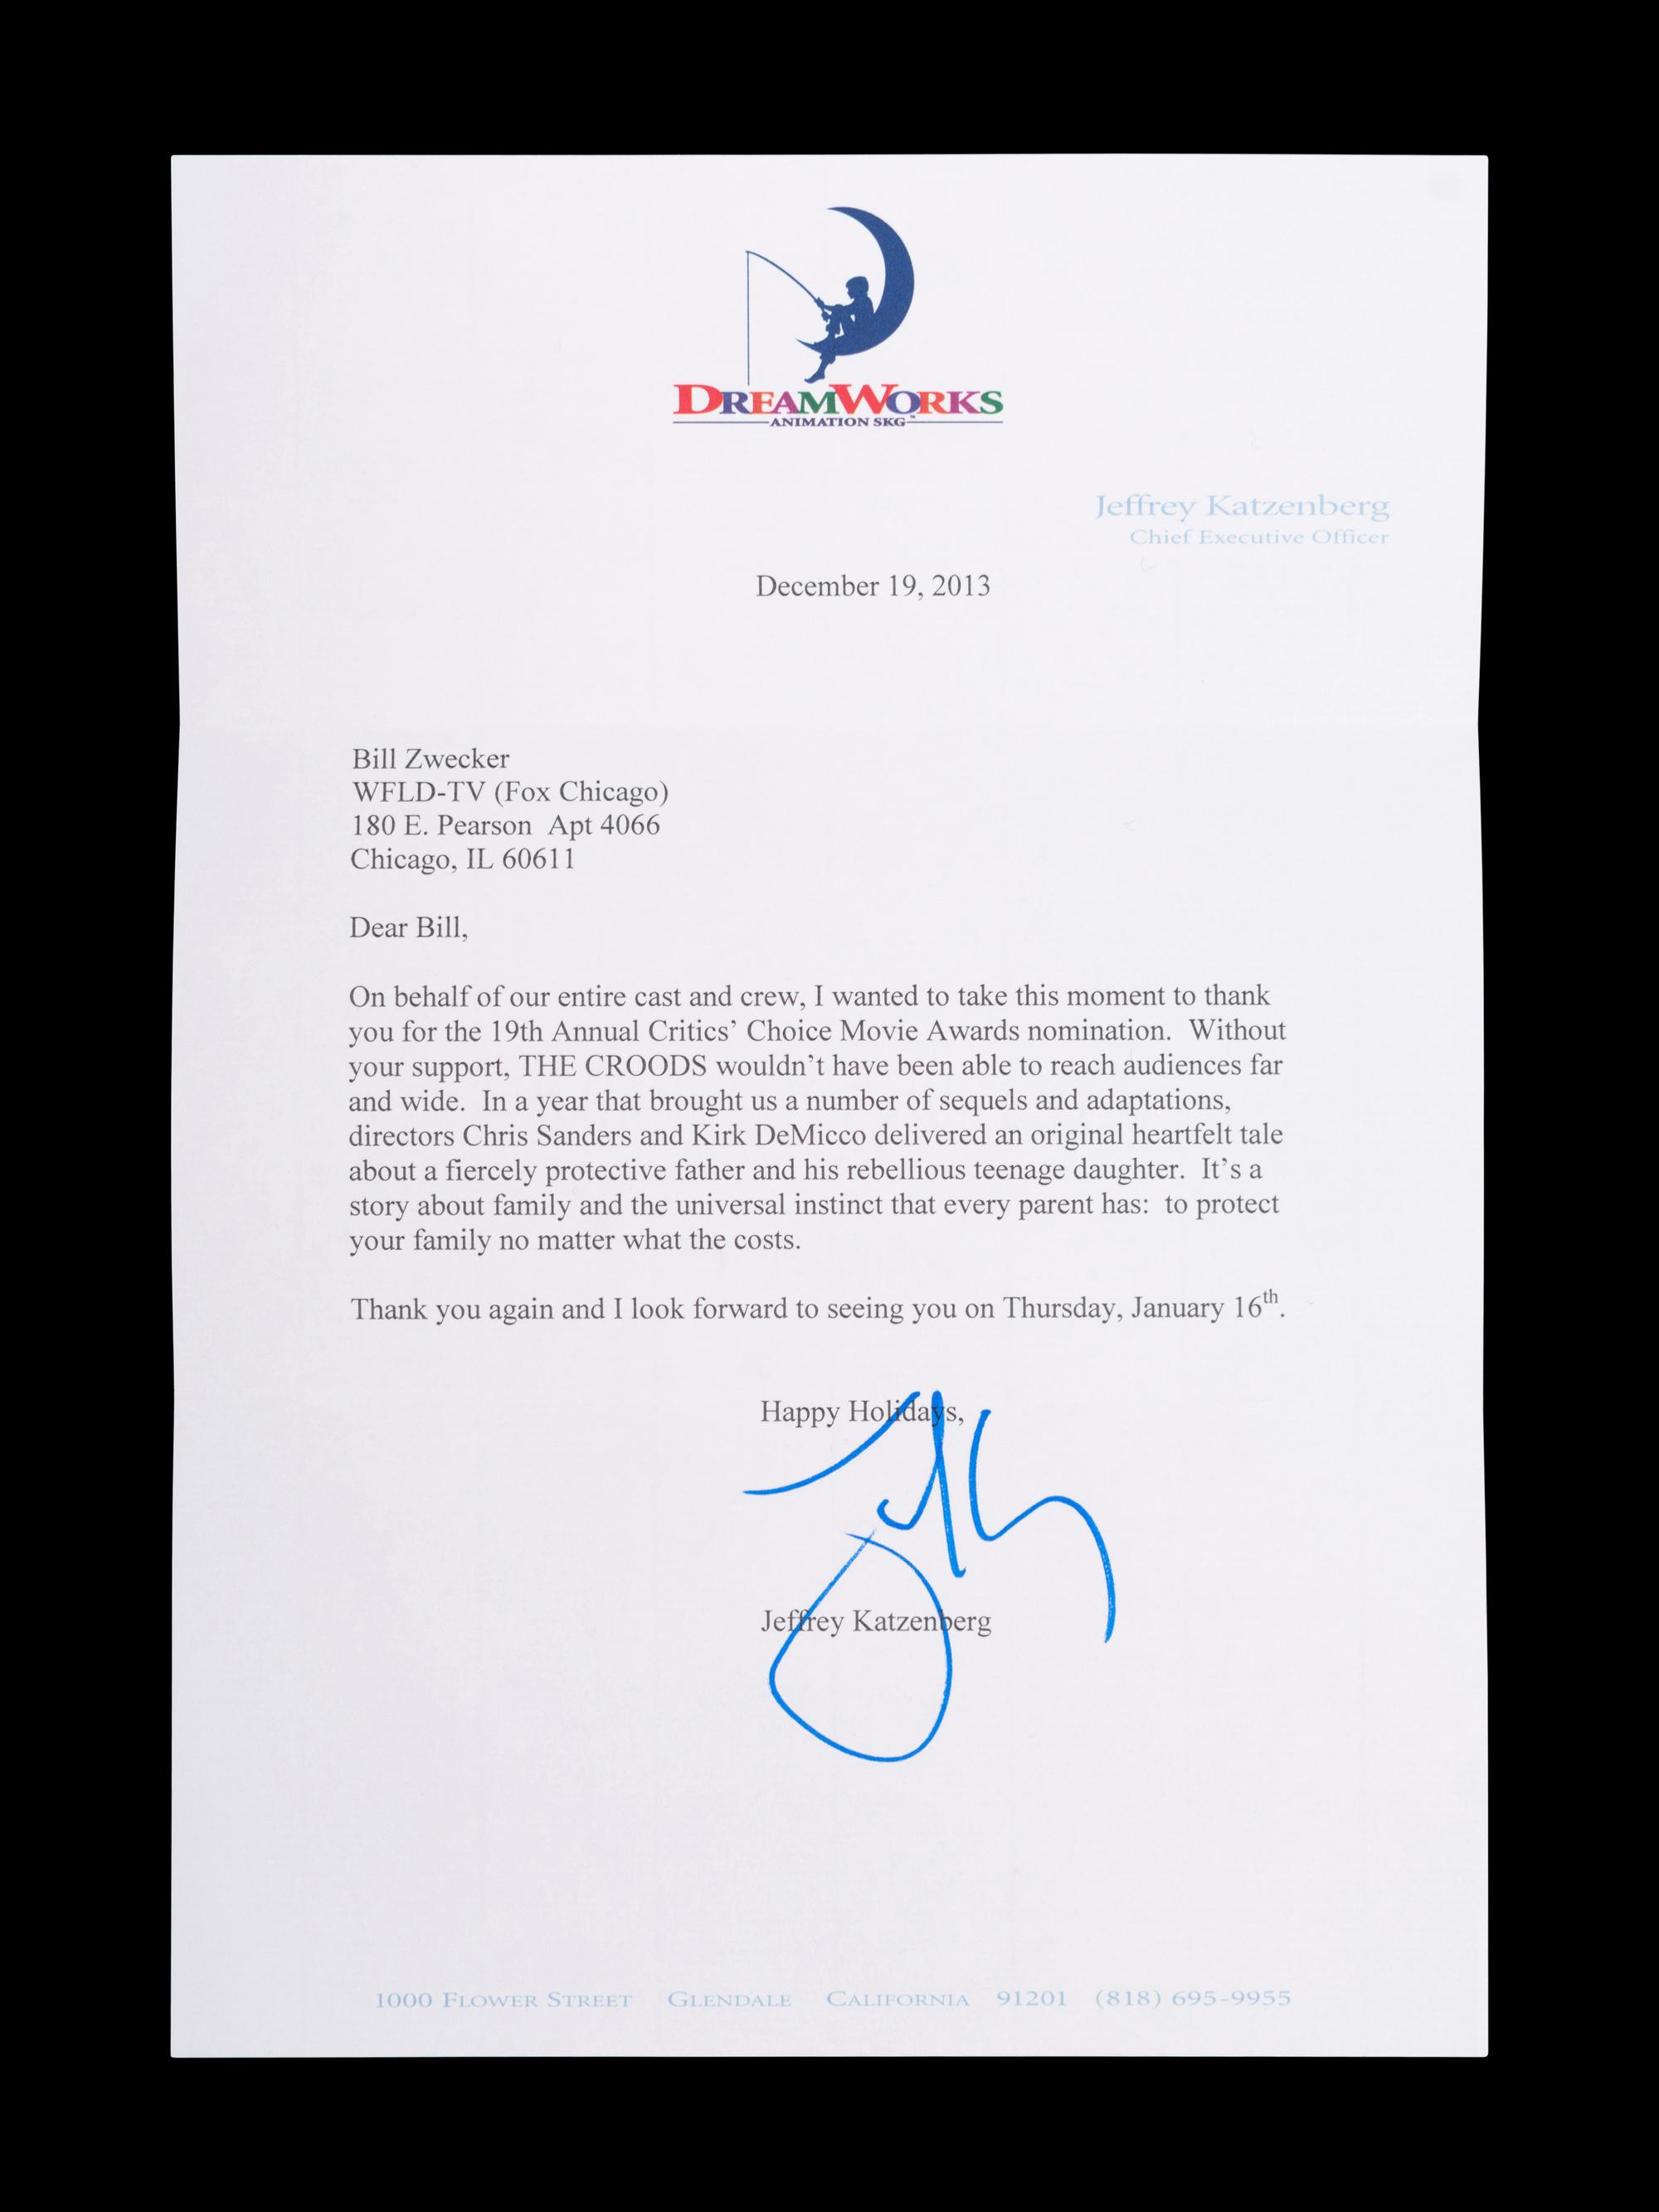 DREAMWORKS
ANIMATION SKG™
Jeffrey Katzenberg
Chief Executive Officer
December 19, 2013
Bill Zwecker
WFLD-TV (Fox Chicago)
180 E. Pearson  Apt 4066
Chicago, IL 60611
Dear Bill,
On behalf of our entire cast and crew, I wanted to take this moment to thank
you for the 19th Annual Critics’ Choice Movie Awards nomination.  Without
your support, THE CROODS wouldn’t have been able to reach audiences far
and wide.  In a year that brought us a number of sequels and adaptations,
directors Chris Sanders and Kirk DeMicco delivered an original heartfelt tale
about a fiercely protective father and his rebellious teenage daughter.  It’s a
story about family and the universal instinct that every parent has:  to protect
your family no matter what the costs.
Thank you again and I look forward to seeing you on Thursday, January 16th.
Happy Holidays,
Jeffrey Katzenberg
1000 FLOWER STREET  GLENDALE  CALIFORNIA  91201  (818) 695-9955